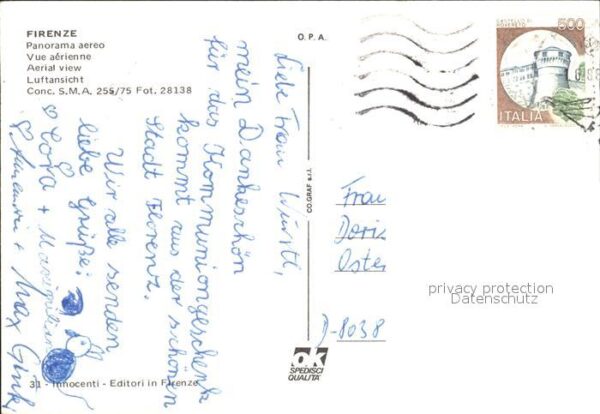 FIRENZE
Panorama aereo
Vue aérienne
Aerial view
Luftansicht
Conc. S.M.A. 255/75 Fot. 28138
O. P. A.
500
ITALIA
Liebe Frau Würstl,
mein Dankeschön
für das Kommuniongeschenk
kommt aus der schönen
Stadt Florenz.
Wir alle senden
liebe Grüße!
Cora + Maximilian
+ Max
CO.GRAF s.r.l.
Frau
Doris
Oster
D-8038
privacy protection
Datenschutz
ok
SPEDISCI
QUALITÀ
31 - Innocenti - Editori in Firenze